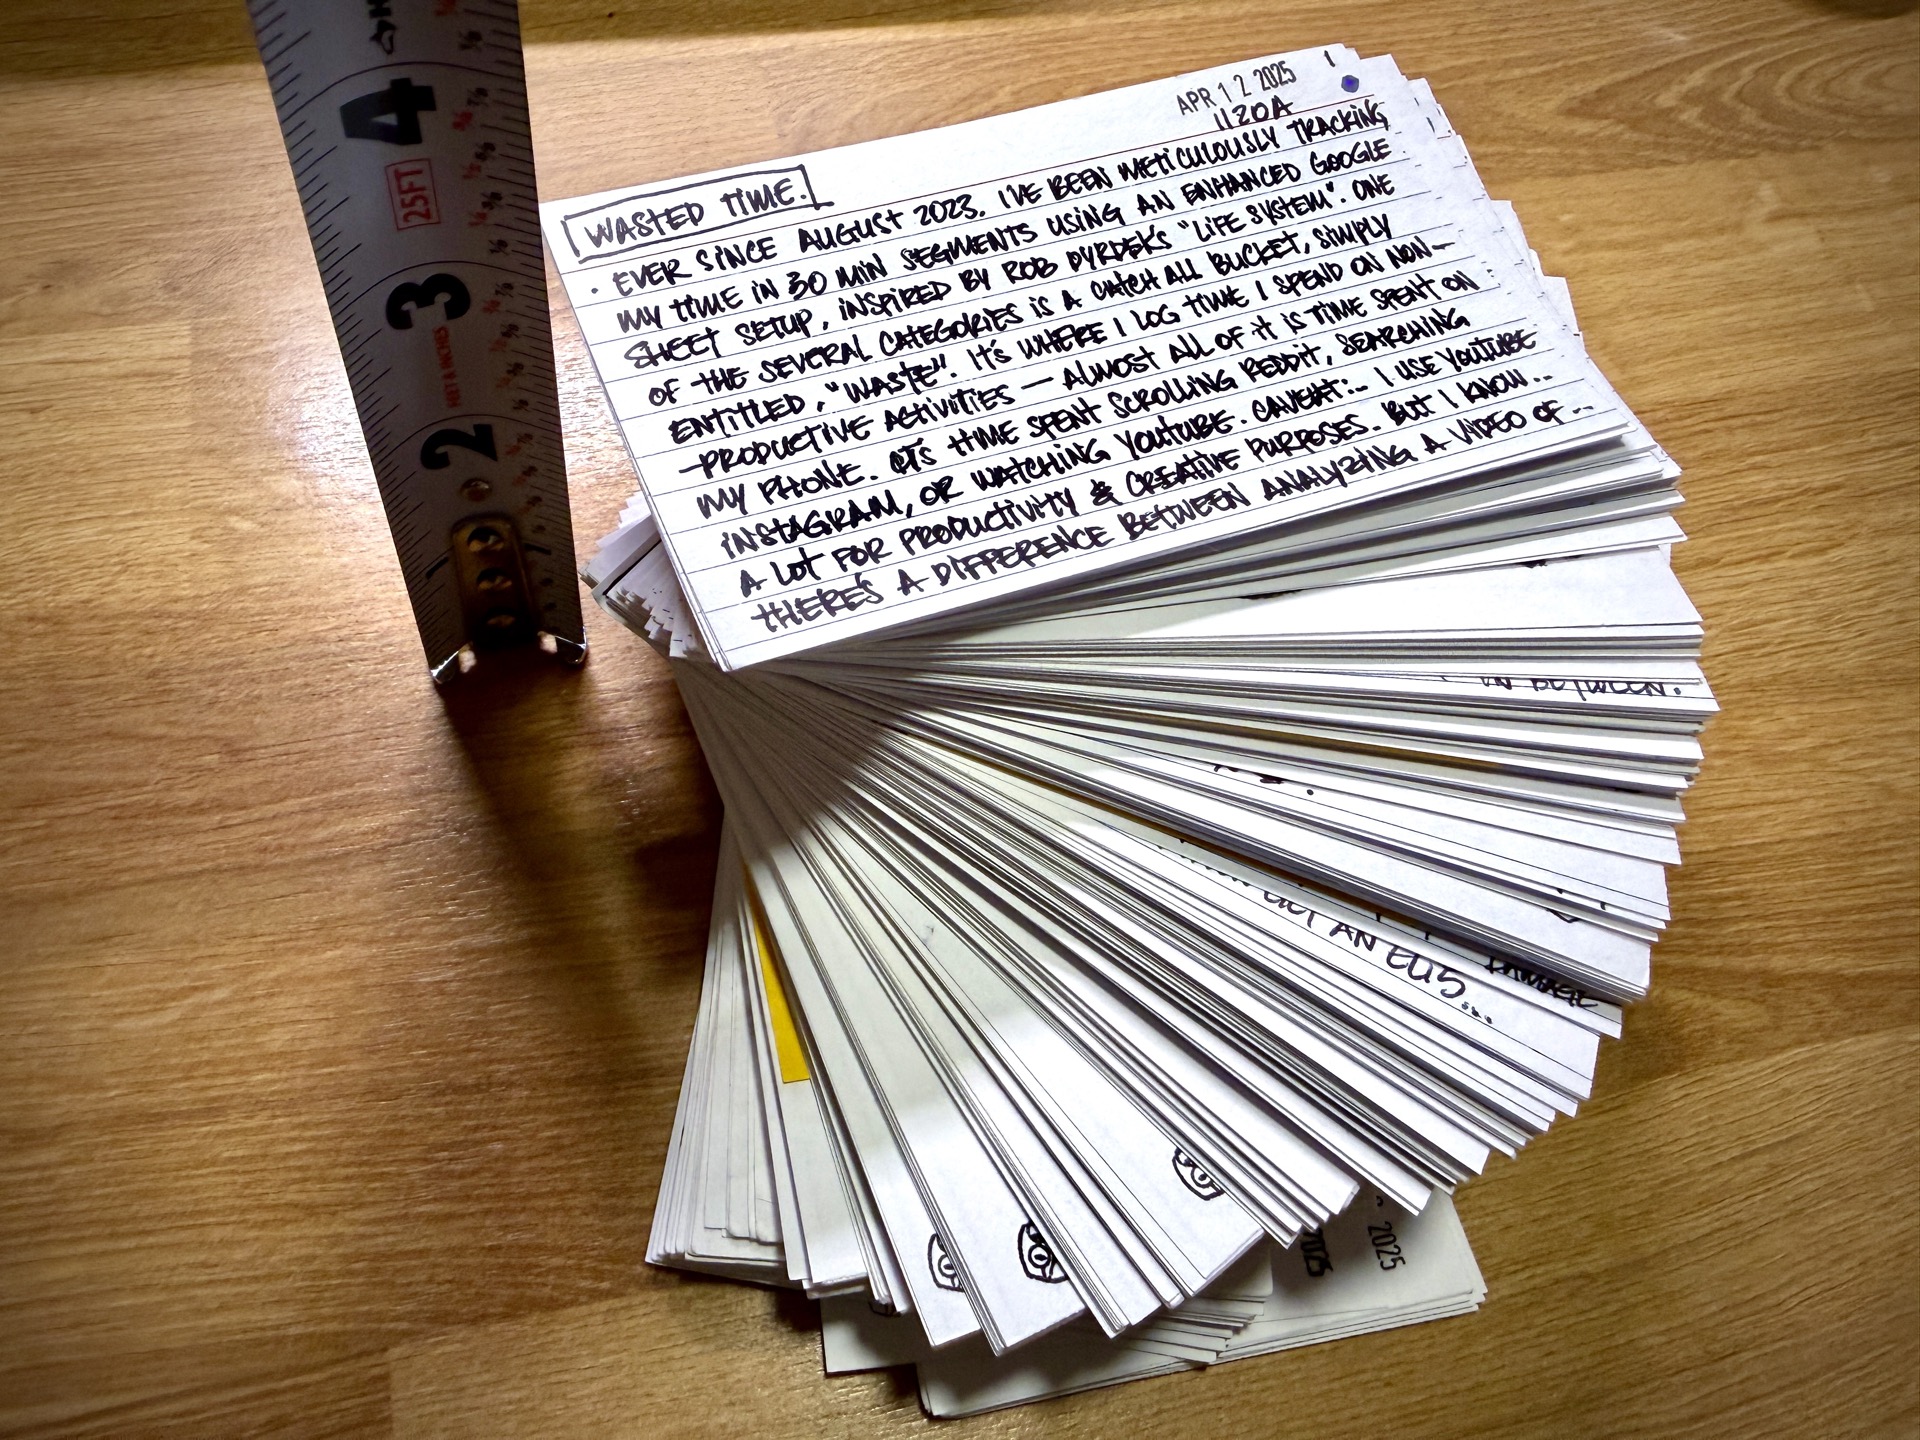 4
25FT
3
2
1
APR 12 2025
1
1120A
WASTED TIME.
· EVER SINCE AUGUST 2023. I'VE BEEN METICULOUSLY TRACKING
MY TIME IN 30 MIN SEGMENTS USING AN ENHANCED GOOGLE
SHEET SETUP, INSPIRED BY ROB DYRDEK'S "LIFE SYSTEM". ONE
OF THE SEVERAL CATEGORIES IS A CATCH ALL BUCKET, SIMPLY
ENTITLED, "WASTE". IT'S WHERE I LOG TIME I SPEND ON NON-
-PRODUCTIVE ACTIVITIES — ALMOST ALL OF IT IS TIME SPENT ON
MY PHONE. IT'S TIME SPENT SCROLLING REDDIT, SEARCHING
INSTAGRAM, OR WATCHING YOUTUBE. CAVEAT:.. I USE YOUTUBE
A LOT FOR PRODUCTIVITY & CREATIVE PURPOSES. BUT I KNOW...
THERE'S A DIFFERENCE BETWEEN ANALYZING A VIDEO OF...
IN BETWEEN.
AN ELI5...
DAMAGE
2025
2025